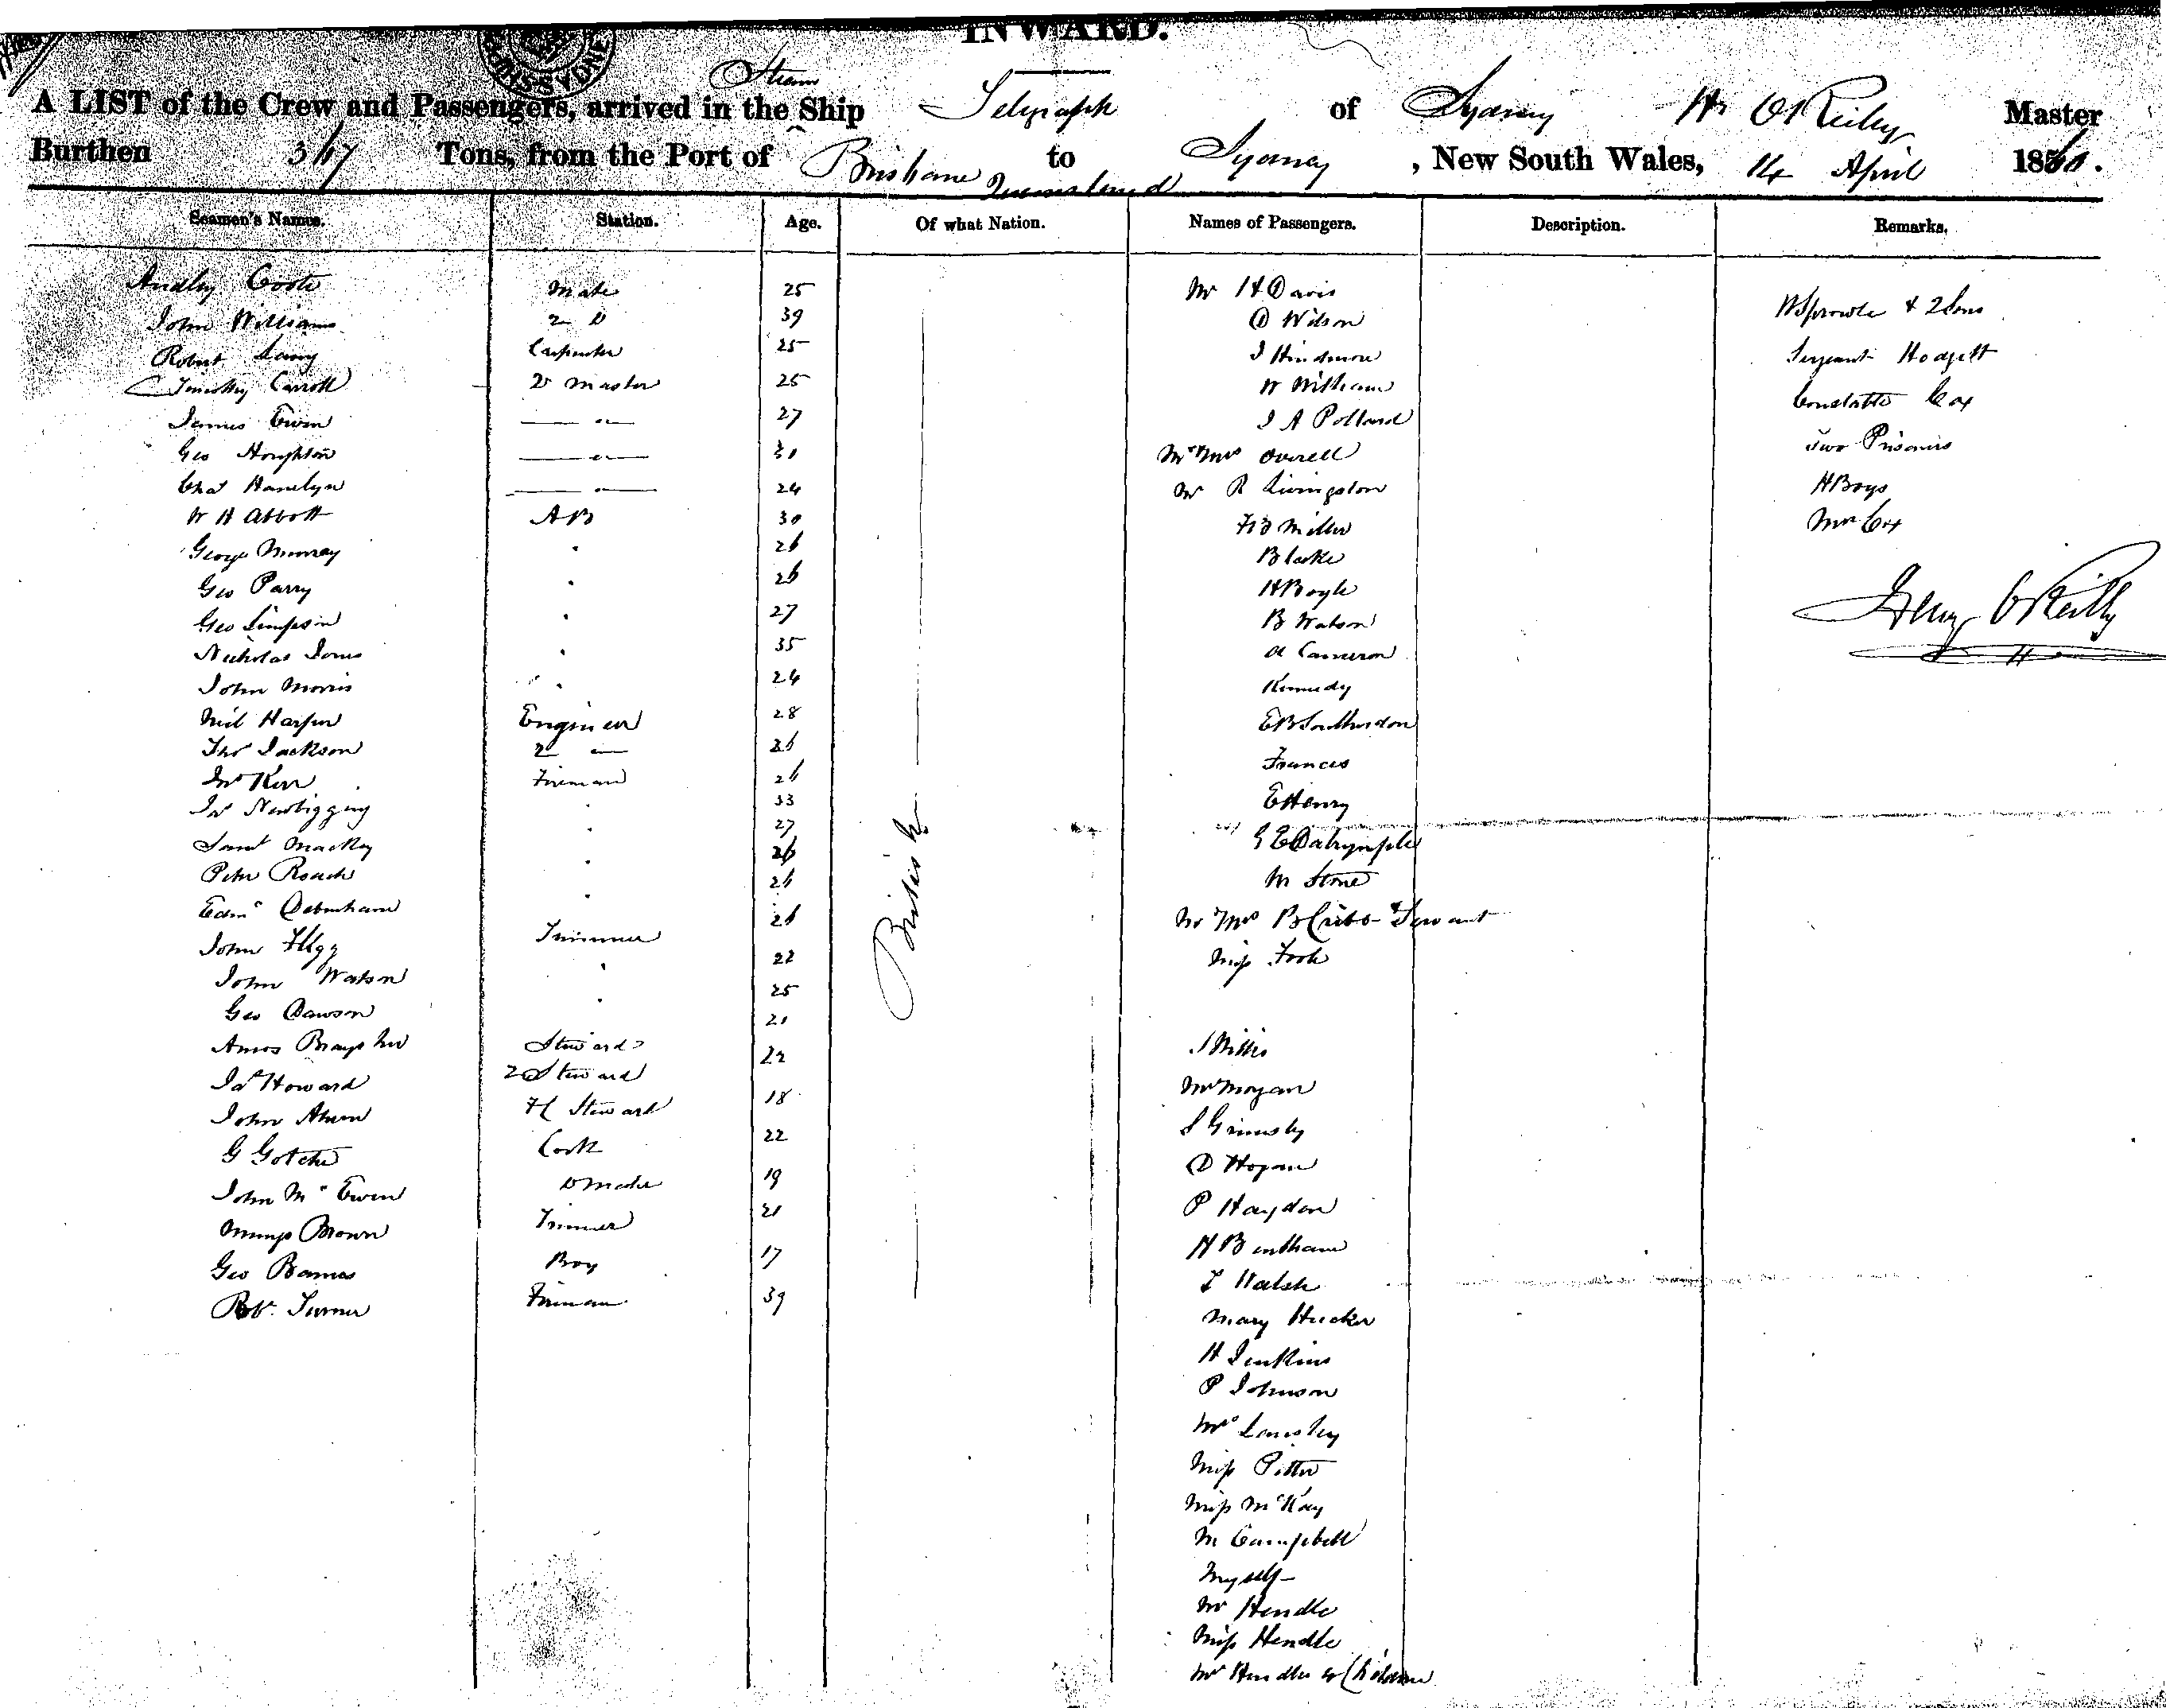 INWARD.
A LIST of the Crew and Passengers, arrived in the Steam Ship Telegraph of Sydney H O'Reilly Master
Burthen 367 Tons, from the Port of Brisbane Queensland to Sydney, New South Wales, 14 April 1860.
Seamen's Names. Station. Age. Of what Nation. Names of Passengers. Description. Remarks.
Audley Coote Mate 25 Mr H Davis
John Williams 2 D 39 D Wilson W Sprowle & 2 Sons
Robert Carpenter 25 J Hindmore Sergeant Hodgett
Timothy Carroll Master 25 W Williams
James Ewen 27 J A Pollard Constable Cox
Geo Houghton 30 Mr & Mrs Overell Two Prisoners
Chas Hamelyn 24 Mr R Livingston H Boys
W H Abbott AB 30 Miller Mrs Cox
George Murray 26 Blake
Geo Parry 26 H Boyle Henry O'Reilly
Geo Simpson 27 B Watson
Nicholas Jones 35 A Cameron
John Morris 24 Kennedy
Neil Harper Engineer 28 E B Southerdon
Thos Jackson 2 26 Frances
Jno Kerr Fireman 26 E Henry
Newbigging 33
Saml Mackey 27 G E Dalrymple
Peter Roach 26 M Stone
Edmd Debenham 26 Mr & Mrs B Cribb & Servant
John Trimmer 26 Miss
John Watson 22
Geo Dawson 25
British
Amos Steward 21 J Willis
Jas Howard 2 Steward 22 Mr Mogan
John Ahern Steward 18 S Grimsby
G Gotche Cook 22 D Hogan
John McEwen D Mate 19 P Haydon
Mungo Brown Trimmer 21 H Bentham
Geo Barnes Boy 17 Walsh
Robt. Turner Fireman 39 Mary Hucker
H Jenkins
P Johnson
Mrs
Miss Pitter
Miss McKay
M Campbell
Myself
Mr Hendle
Miss Hendle
Mrs Hendle & Children